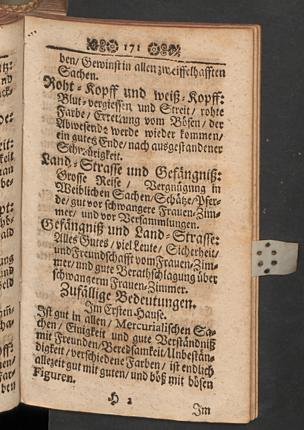 171
den/ Gewinst in allen zweiffelhafften
Sachen.
Roht-Kopff und weiß-Kopff:
Blut-vergiessen und Streit/ rohte
Farbe/ Errettung vom Bösen/ der
Abwesende werde wieder kommen/
ein gutes Ende/ nach ausgestandener
Schwürigkeit.
Land-Strasse und Gefängniß:
Grosse Reise/ Vergnügung in
Weiblichen Sachen/ Schätze/ Pfer-
de/ gut vor schwangere Frauen-Zim-
mer/ und vor Versammlungen.
Gefängniß und Land-Strasse:
Alles Gutes/ viel Leute/ Sicherheit/
und Freundschafft vom Frauen-Zim-
mer/ und gute Berathschlagung über
schwangerm Frauen-Zimmer.
Zufällige Bedeutungen.
Im Ersten-Hause.
Ist gut in allen/ Mercurialischen Sa-
chen/ Einigkeit und gute Verständniß
mit Freunden/ Beredsamkeit/ Unbestän-
digkeit/ verschiedene Farben/ ist endlich
allezeit gut mit guten/ und böß mit bösen
Figuren.
H 2
Im